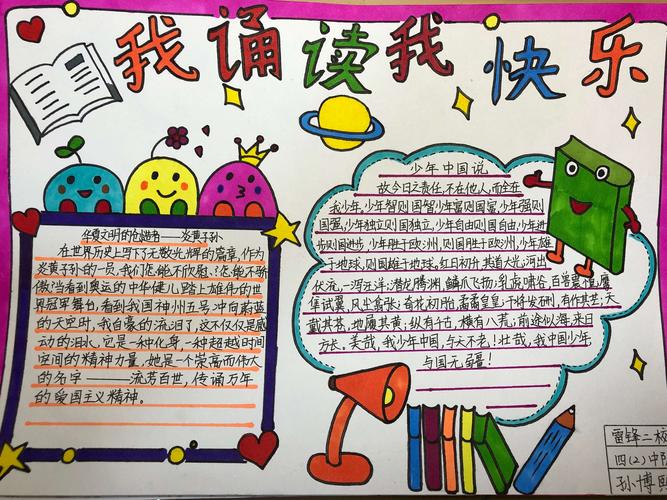 我诵读我快乐
华夏文明的创造者——炎黄子孙
在世界历史上写下无数光辉的篇章,作为
炎黄子孙的一员,我们怎能不欣慰;怎能不骄
傲!当看到奥运的中华健儿踏上雄伟的世
界冠军舞台,看到我国神州五号冲向蔚蓝
的天空时,我自豪的流泪了,这不仅仅是感
动的泪水,它是一种化身,一种超越时间
空间的精神力量,她是一个崇高而伟大
的名字——流芳百世,传诵万年
的爱国主义精神。
少年中国说
故今日之责任,不在他人,而全在
我少年,少年智则国智,少年富则国富,少年强则
国强,少年独立则国独立,少年自由则国自由,少年进
步则国进步,少年胜于欧洲,则国胜于欧洲,少年雄
于地球,则国雄于地球。红日初升,其道大光;河出
伏流,一泻汪洋;潜龙腾渊,鳞爪飞扬;乳虎啸谷,百兽震惶;鹰
隼试翼,风尘翕张;奇花初胎,矞矞皇皇;干将发硎,有作其芒;天
戴其苍,地履其黄;纵有千古,横有八荒;前途似海,来日
方长。美哉,我少年中国,与天不老!壮哉,我中国少年,
与国无疆!
雷锋二校
四(2)中队
孙博